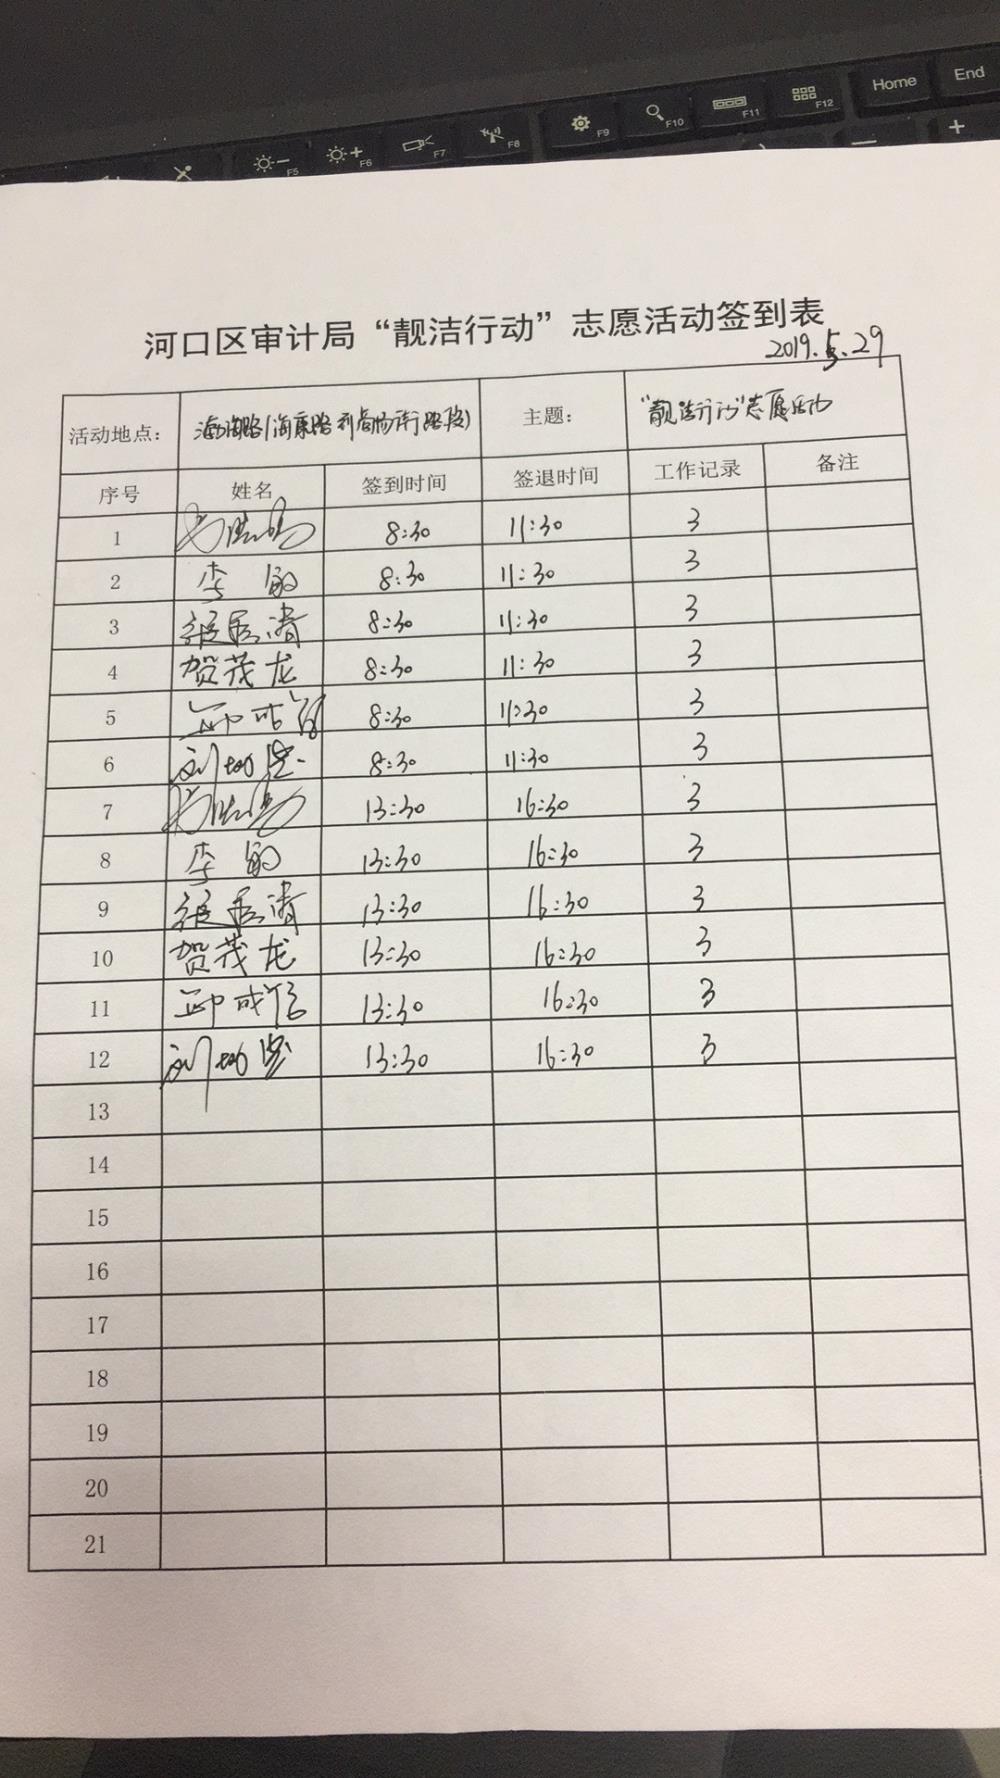 Home End
F5 F6 F7 F8 F9 F10 F11 F12
河口区审计局“靓洁行动”志愿活动签到表
2019.5.29
活动地点： 主题： “靓洁行动”志愿活动
序号 姓名 签到时间 签退时间 工作记录 备注
1 8:30 11:30 3
2 李敏 8:30 11:30 3
3 8:30 11:30 3
4 贺茂龙 8:30 11:30 3
5 8:30 11:30 3
6 8:30 11:30 3
7 13:30 16:30 3
8 李敏 13:30 16:30 3
9 13:30 16:30 3
10 贺茂龙 13:30 16:30 3
11 13:30 16:30 3
12 13:30 16:30 3
13
14
15
16
17
18
19
20
21